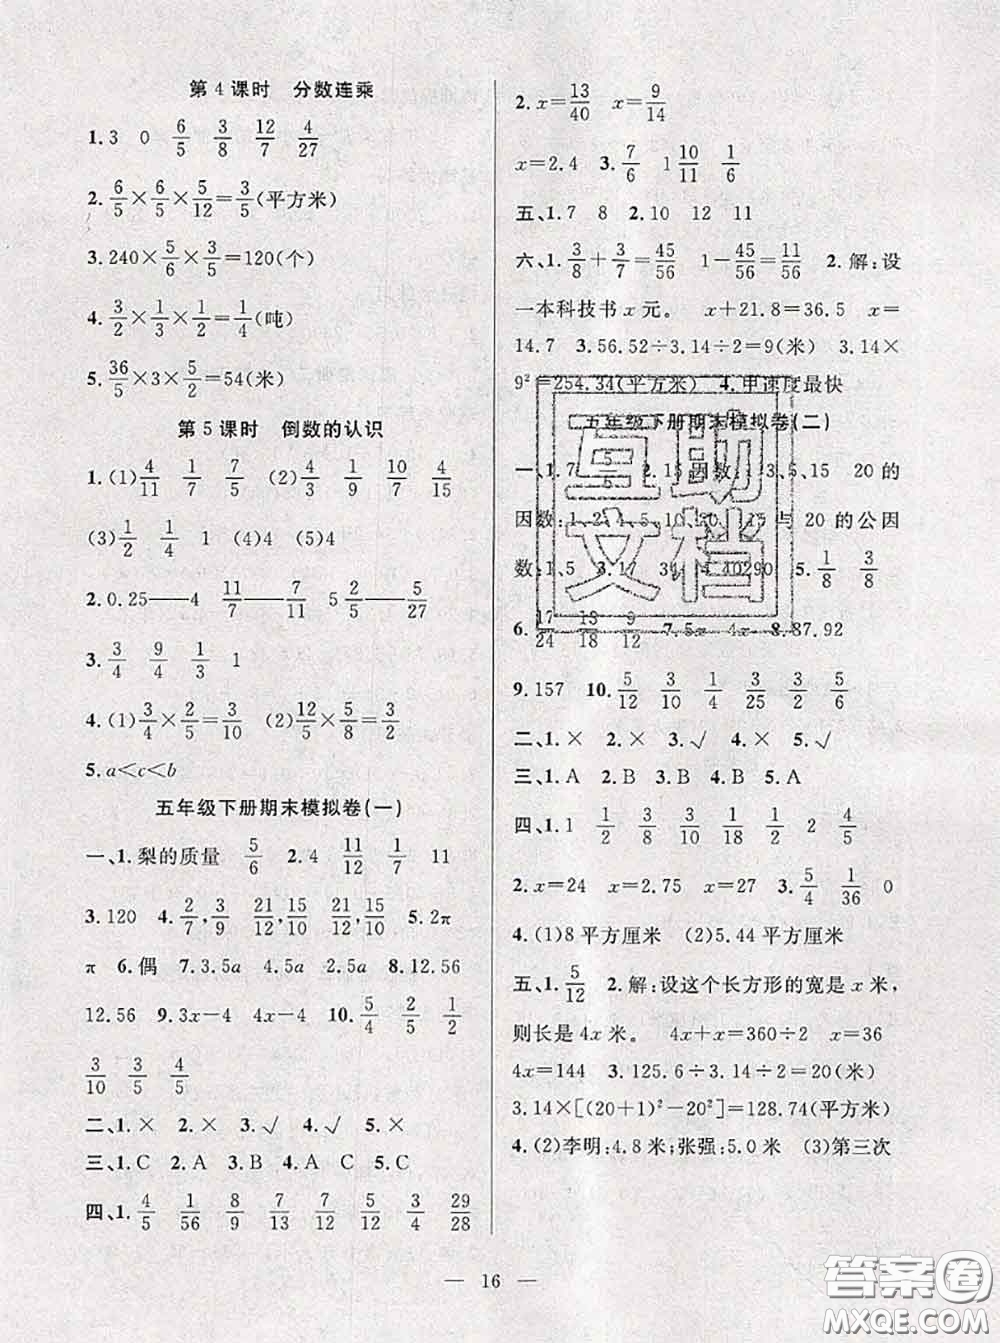 第4课时 分数连乘
1.3 0 6/5 3/8 12/7 4/27
2.6/5×6/5×5/12=3/5(平方米)
3.240×5/6×3/5=120(个)
4.3/2×1/3×1/2=1/4(吨)
5.36/5×3×5/2=54(米)
第5课时 倒数的认识
1.(1)4/11 1/7 7/5 (2)4/9 1/8 10/7 4/15
(3)1/2 1/4 1 (4)4 (5)4
2.0.25——4 11/7——7/11 5 2/5——5/27
3.3/4 9/4 1/3 1
4.(1)3/4×2/5=3/10 (2)12/5×5/8=3/2
5.a<c<b
五年级下册期末模拟卷(一)
一、1.梨的质量 5/6 2.4 11/12 1/7 11
3.120 4.2/7,3/9 21/12,15/12 21/10,15/10 5.2π
π 6.偶 7.3.5a 4.5a 8.12.56
12.56 9.3x-4 4x-4 10.5/4 2/5 1/2
3/10 3/5 4/5
二、1.× 2.× 3.√ 4.√ 5.×
三、1.C 2.A 3.B 4.A 5.C
四、1.4/5 1/56 8/9 7/13 7/12 3/4 29/28
2.x=13/40 x=9/14
x=2.4 3.7/6 1 10/11 1/6
五、1.7 8 2.10 12 11
六、1.3/8+3/7=45/56 1-45/56=11/56 2.解:设
一本科技书x元。 x+21.8=36.5 x=
14.7 3.56.52÷3.14÷2=9(米) 3.14×
9²=254.34(平方米) 4.甲速度最快
五年级下册期末模拟卷(二)
一、1.7 5/6 2.15因数:1,3,5,15 20的
因数:1,2,4,5,10,20 15与20的公因
数:1,5 3.17 34 4.40290 5.1/8 3/8
6.17/24 13/18 9/12 7.5x 4x 8.87.92
9.157 10.5/12 3/10 1/4 3/25 3/2 5/6
二、1.× 2.× 3.√ 4.× 5.√
三、1.A 2.B 3.B 4.B 5.A
四、1.1 1/2 3/8 3/10 1/18 1/2 2 4/5
2.x=24 x=2.75 x=27 3.5/4 1/36 0
4.(1)8平方厘米 (2)5.44平方厘米
五、1.5/12 2.解:设这个长方形的宽是x米,
则长是4x米。 4x+x=360÷2 x=36
4x=144 3.125.6÷3.14÷2=20(米)
3.14×[(20+1)²-20²]=128.74(平方米)
4.(2)李明:4.8米;张强:5.0米 (3)第三次
互助
文档
— 16 —
答案圈
MXQE.COM